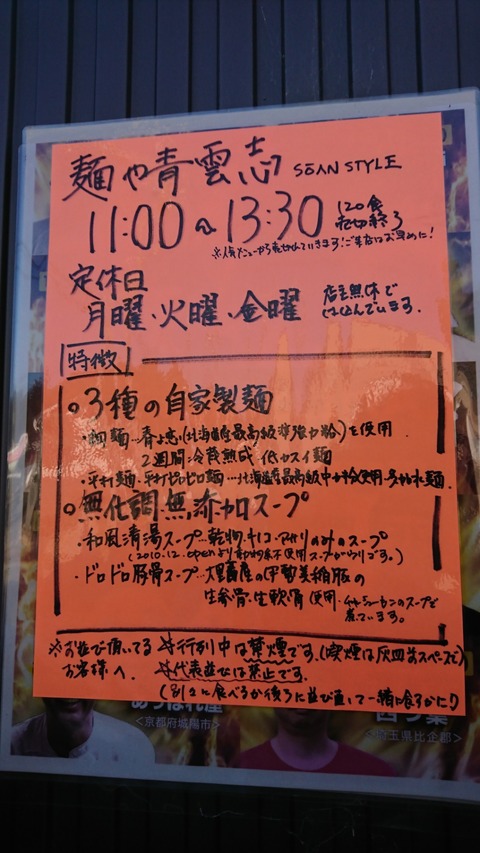 麺や青雲志 SOAN STYLE
11:00~13:30 120食
売切終了
※人気メニューから売切れていきます!ご来店はお早めに!
定休日
月曜・火曜・金曜 店主無休で
仕込んでいます。
特徴
○3種の自家製麺
・細麺…春よ恋(北海道産最高級準強力粉)を使用
2週間冷蔵熟成 低カスイ麺
○無化調・無添加スープ
・和風清湯スープ…乾物・キノコ・アサリのみのスープ
(2010.12.openより動物系不使用スープがウリです。)
・ドロドロ豚骨スープ…大里畜産の伊勢美稲豚の
生背骨・生軟骨使用
炊いています。
※お並び頂いてる
お客様へ。
☆行列中は禁煙です。(喫煙は灰皿前スペースに)
☆代表並びは禁止です。
(別々に食べるか後ろに並び直して一緒に食べるかに)
<京都府城陽市>
<埼玉県比企郡>